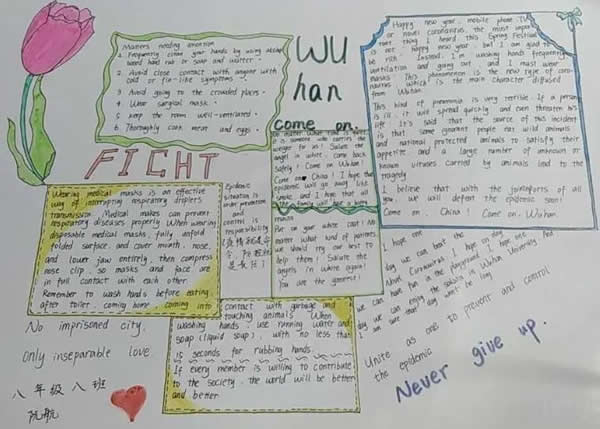 Matters needing attention
1. Frequently clean your hands by using alcohol
based hand rub or soap and water.
2. Avoid close contact with anyone with
cold or flu-like symptoms.
3. Avoid going to the crowded places.
4. Wear surgical mask.
5. keep the room well-ventilated.
6. Thoroughly cook meat and eggs.
WU
han
come on
FIGHT
Happy new year, mobile phone, TV
or novel coronavirus the most
thing I heard this Spring Festival
is not happy new year, but I am glad to
be rich. Instead, I'm washing hands frequently
ventilation and going out and I must wear
masks. This phenomenon is the new type of coro-
navirus which is the main character diffused
from Wuhan.
This kind of pneumonia is very terrible. If a person
is ill, it will spread quickly and even threaten his
life. It's said that the source of this incident
is that some ignorant people eat wild animals
and national protected animals to satisfy their
appetite and a large number of unknown or
known viruses carried by animals lead to the
tragedy.
I believe that with the joint efforts of all
of you, we will defeat the epidemic soon!
Come on, China! Come on, Wuhan.
No matter what time is
it is someone who carries the
weight for us! Salute the
angel in white, come back
safely! Come on Wuhan!
Come on China! I hope the
epidemic will go away like
smoke, and I hope that all
the will have a happy
reunion
Put on your white coat! No
matter what kind of patients
we should try our best to
help them! Salute the
angels in white again!
You are the greatest!
Wearing medical masks is an effective
way of interrupting respiratory droplets
transmission. Medical makes can prevent
respiratory diseases properly. When wearing
disposable medical masks, fully unfold
folded surface, and cover mouth, nose,
and lower jaw entirely, then compress
nose clip, so masks and face are
in full contact with each other.
Remember to wash hands before eating,
after toilet, coming home, coming into
contact with garbage and
touching animals. When
washing hands, use running water and
soap (liquid soap), with no less that
15 seconds for rubbing hands
If every member is willing to contribute
to the society, the world will be better
and better.
Epidemic
situation is
under prevention
and
control is
responsibility
I hope one
day we can beat the
Novel Coronavirus. I hope on day
we can have fun in the playground. I hope one
day we can enjoy the sakura in Wuhan University. And
I am sure that day won't be long
Unite as one to prevent and control
the epidemic
Never give up.
No imprisoned city,
Only inseparable love.
八年级八班
阮航